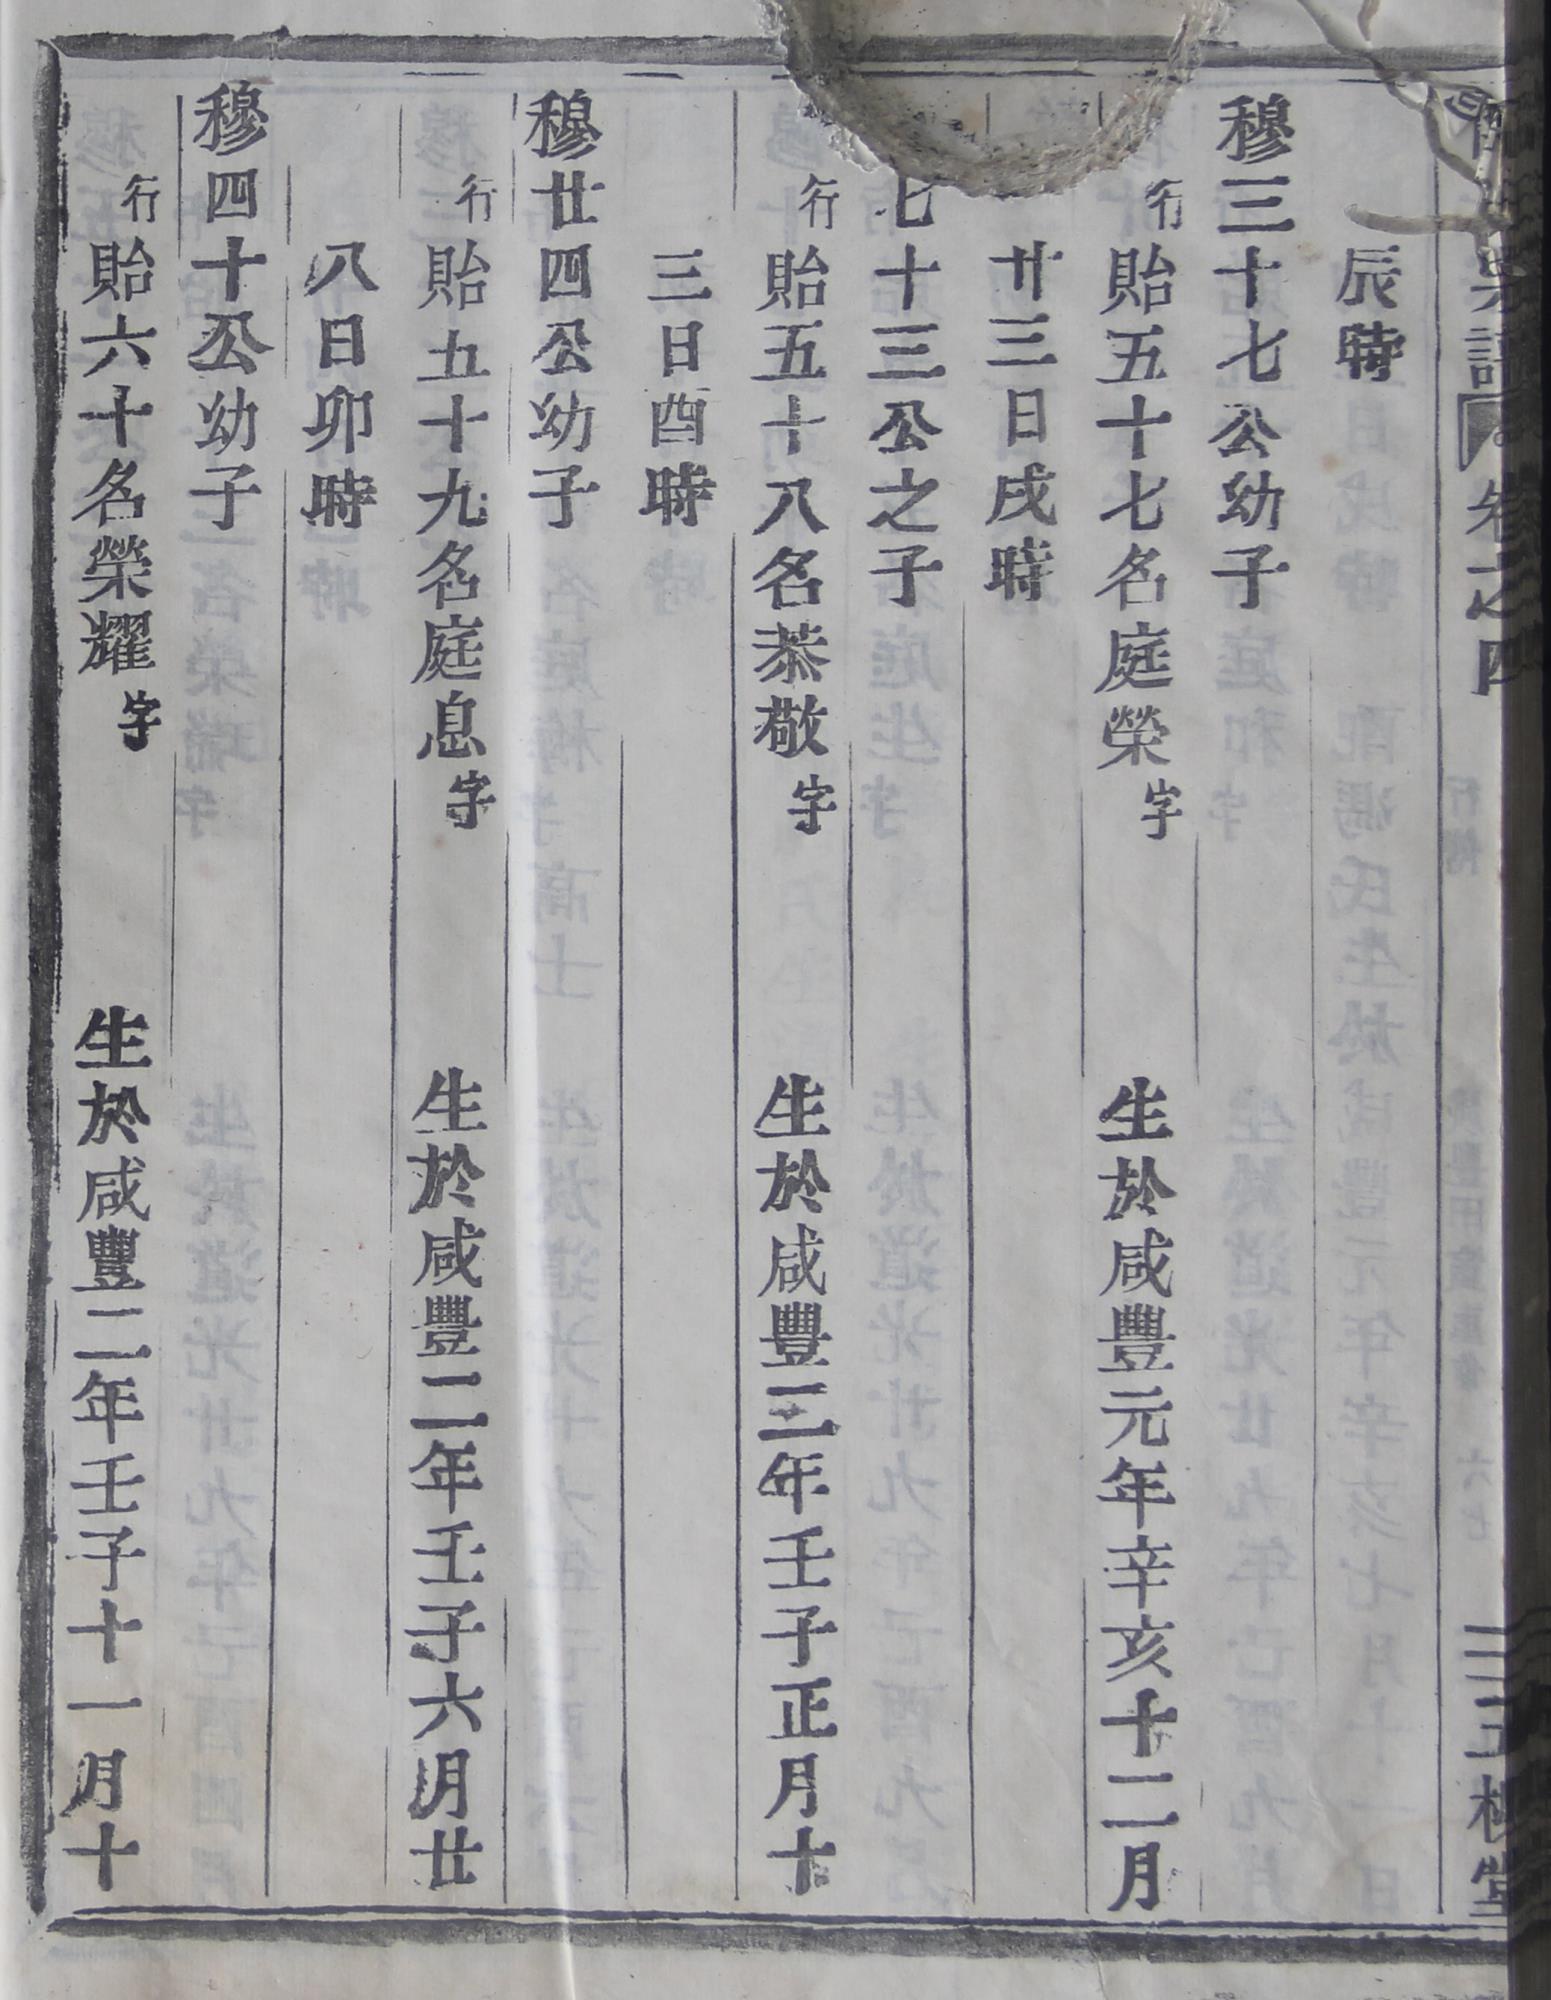 宗譜 卷之四 三槐堂
辰時
穆三十七公幼子
行貽五十七名庭榮字 生於咸豐元年辛亥十二月
廿三日戌時
七十三公之子
行貽五十八名恭敬字 生於咸豐三年壬子正月十
三日酉時
穆廿四公幼子
行貽五十九名庭息字 生於咸豐二年壬子六月廿
八日卯時
穆四十公幼子
行貽六十名榮耀字 生於咸豐二年壬子十一月十